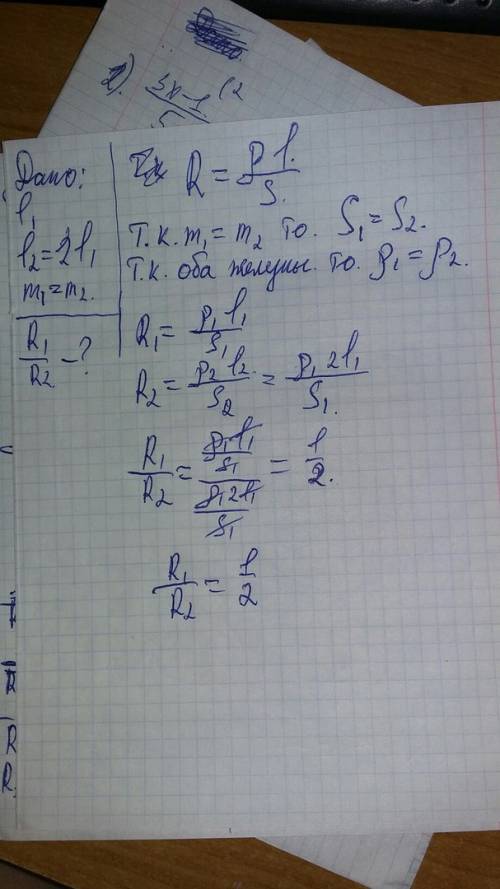 2). 3x-1 (2
5
Дано:
l₁
l₂=2l₁
m₁=m₂.
R₁/R₂ - ?
R = ρl/S.
Т.к. m₁=m₂ то. S₁=S₂.
Т.к. оба железны. то. ρ₁=ρ₂.
R₁= ρ₁l₁/S₁
R₂= ρ₂l₂/S₂ = ρ₁2l₁/S₁.
R₁/R₂ = (ρ₁l₁/S₁)/(ρ₁2l₁/S₁) = 1/2.
R₁/R₂ = 1/2
R
R
R